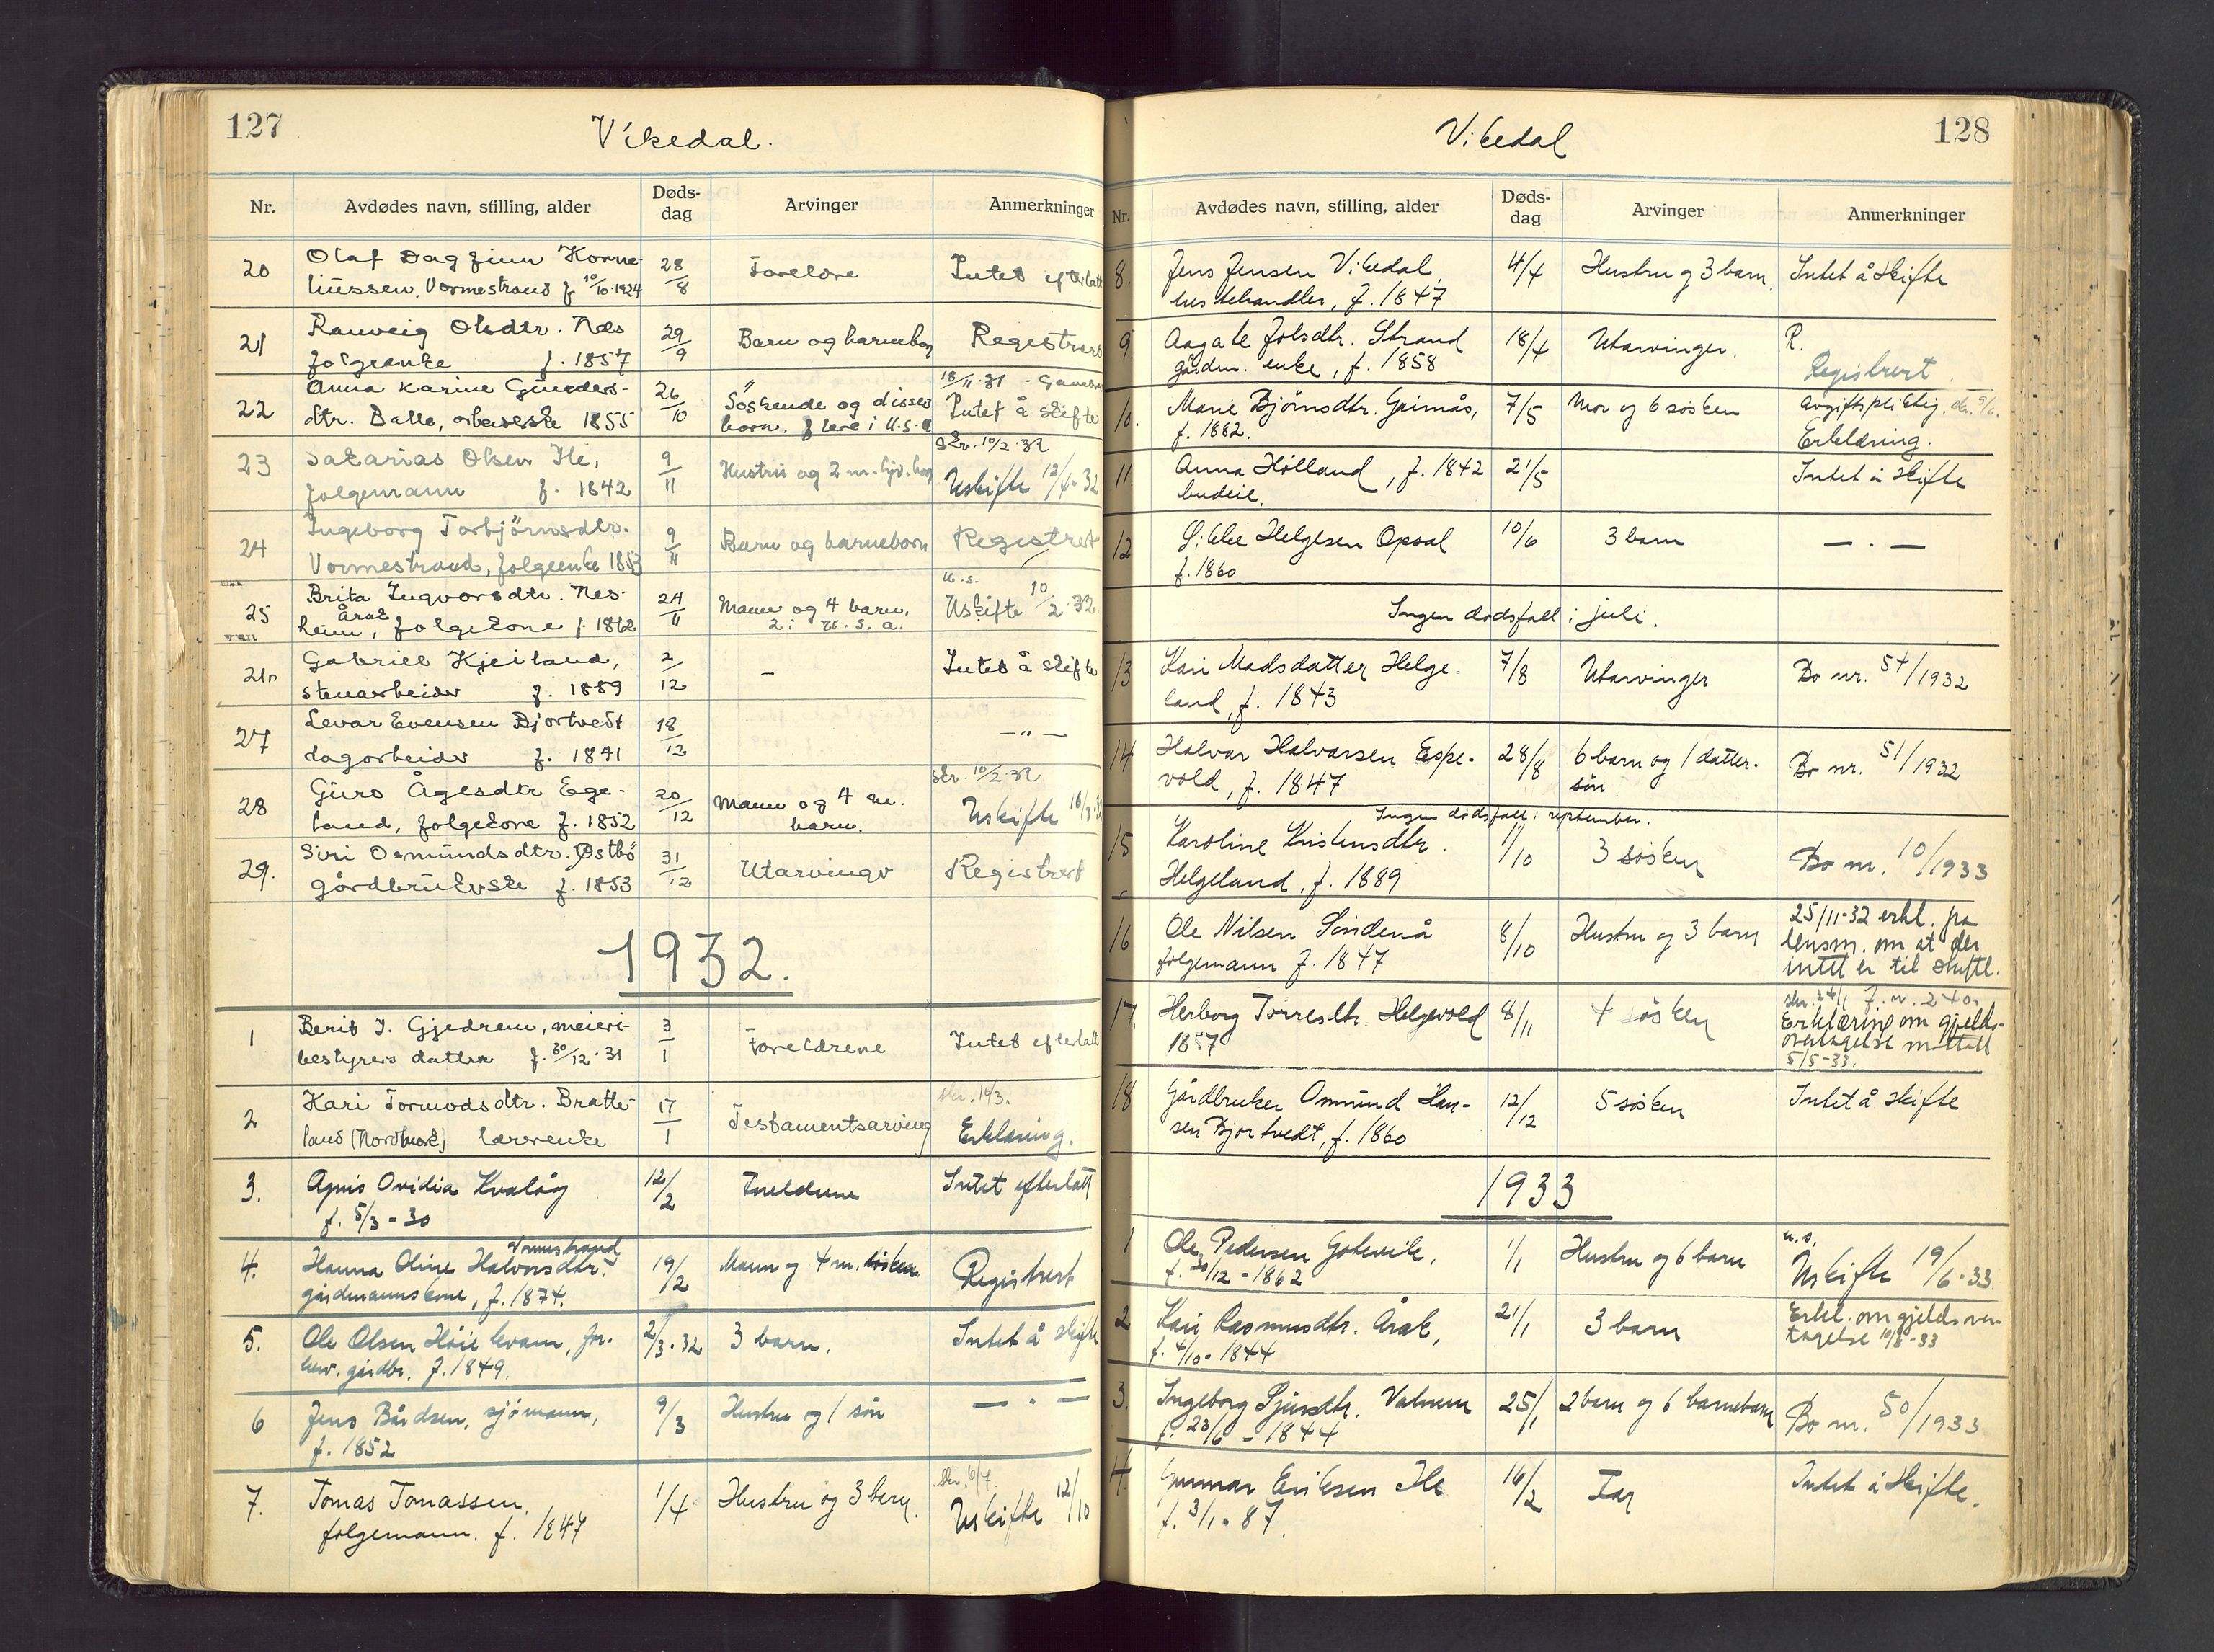 127
Vikedal.
Nr. Avdødes navn, stilling, alder Døds-dag Arvinger Anmerkninger
20 Olaf Dagfinn Korne- 28/8 Foreldre Intet efterlatt
liussen, Vormestrand f 10/10-1924
21 Ranveig Olsdtr. Næs 29/9 Barn og barnebarn Registrert
folgeenke f. 1857
18/11-31
22 Anna Karine Gunders- 26/10 Söskende og disses Intet å skifte
dtr. Balle, arbeiderske 1855 born. flere i U.S.A
skr. 10/2-32
23 Sakarias Olsen Ile, 9/11 Hustru og 2 m. Uskifte 12/4-32
folgemann f. 1842
24 Ingeborg Torbjörnsdtr. 9/11 Barn og barneborn Registrert
Vormestrand, folgeenke 1853
u.s.
25 Brita Ingvorsdtr. Nes- 24/11 Mann og 4 barn, Uskifte 10/2-32.
heim, Årak folgekone f. 1862 2 i U.S.A.
26 Gabriel Kjeiland, 2/12 - Intet å skifte
stenarbeider f. 1889
27 Levar Evensen Bjortvedt 18/12 — " —
dagarbeider f. 1841
skr. 10/2-32
28 Guro Ågesdtr Ege- 20/12 Mann og 4 m. Uskifte 16/3-32
land, folgekone f. 1852 barn.
29. Siri Osmundsdtr. Østbö 31/12 Utarvinger Registrert
gårdbrukerske f. 1853
1932.
1 Berit J. Gjedrem, meieri- 3/1 Foreldrene Intet efterlatt
bestyrers datter f. 30/12-31
skr. 14/3.
2 Kari Tormodsdtr. Bratte- 17/1 Testamentsarving Erklæring.
land (Nordmork) lærerenke
3. Agnis Ovidia Kvalåg 12/2 Foreldrene Intet efterlatt
f. 5/3-30
Vormestrand
4. Hanna Oline Halvorsdtr. 19/2 Mann og 4 m. søsken Registrert
gårdmannskone, f. 1874.
5. Ole Olsen Høie kvam, for- 2/3-32 3 barn. Intet å skifte
hew. gårdbr. f. 1849.
6 Jens Bårdsen, sjømann, 9/3 Hustru og 1 sön — " —
f. 1852
skr. 6/7.
7. Tomas Tomassen, 1/4 Hustru og 3 barn. Uskifte 12/10
folgemann. f. 1847
128
Vikedal
Nr. Avdødes navn, stilling, alder Døds-dag Arvinger Anmerkninger
8. Jens Jensen Vikedal, 4/4 Hustru og 3 barn. Intet å skifte
hestehandler, f. 1847
9. Aagate Jolsdtr. Strand 18/4 Utarvinger. R.
gårdm. enke, f. 1858 Registrert.
10. Marie Bjørnsdtr. Grimås, 7/5 Mor og 6 søsken Avgiftspliktig. skr. 9/6.
f. 1882. Erklæring.
11. Anna Hölland, f. 1842 21/5 Intet å skifte
budeie.
12 Sikke Helgesen Opsal 10/6 3 barn — " —
f. 1860
Ingen dødsfall i juli.
13 Kari Madsdatter Helge- 7/8 Utarvinger Bo nr. 54/1932
land, f. 1843
14 Halvar Halvarsen Espe- 28/8 6 barn og 1 datter- Bo nr. 51/1932
vold, f. 1847 sön.
Ingen dødsfall i september.
15 Karoline Kristensdtr. 1/10 3 søsken Bo nr. 10/1933
Helgeland, f. 1889
16 Ole Nilsen Søndenå 8/10 Hustru og 3 barn 25/11-32 erkl. fra
folgemann f. 1847 lensm. om at der
intet er til skifte.
17. Herborg Torresdtr. Helgevold 8/11 4 søsken skr. 24/1 J.nr. 240.
1857 Erklæring om gjelds-
overtagelse mottatt
5/5-33.
18 Gårdbruker Osmund Han- 12/12 5 søsken Intet å skifte
sen Bjortvedt, f. 1860
1933
u.s.
1 Ole Pedersen Gotevik, 1/1 Hustru og 6 barn Uskifte 19/6-33
f. 30/12-1862
2 Kari Rasmusdtr. Årak, 21/1 3 barn Erkl. om gjeldsover-
f. 4/10-1844 tagelse 10/5-33
3. Ingeborg Sjursdtr. Vatnem 25/1 2 barn og 6 barnebarn Bo nr. 50/1933
f. 23/6-1844
4. Gunnar Eriksen Ile 16/2 Far Intet å skifte.
f. 3/1-87.